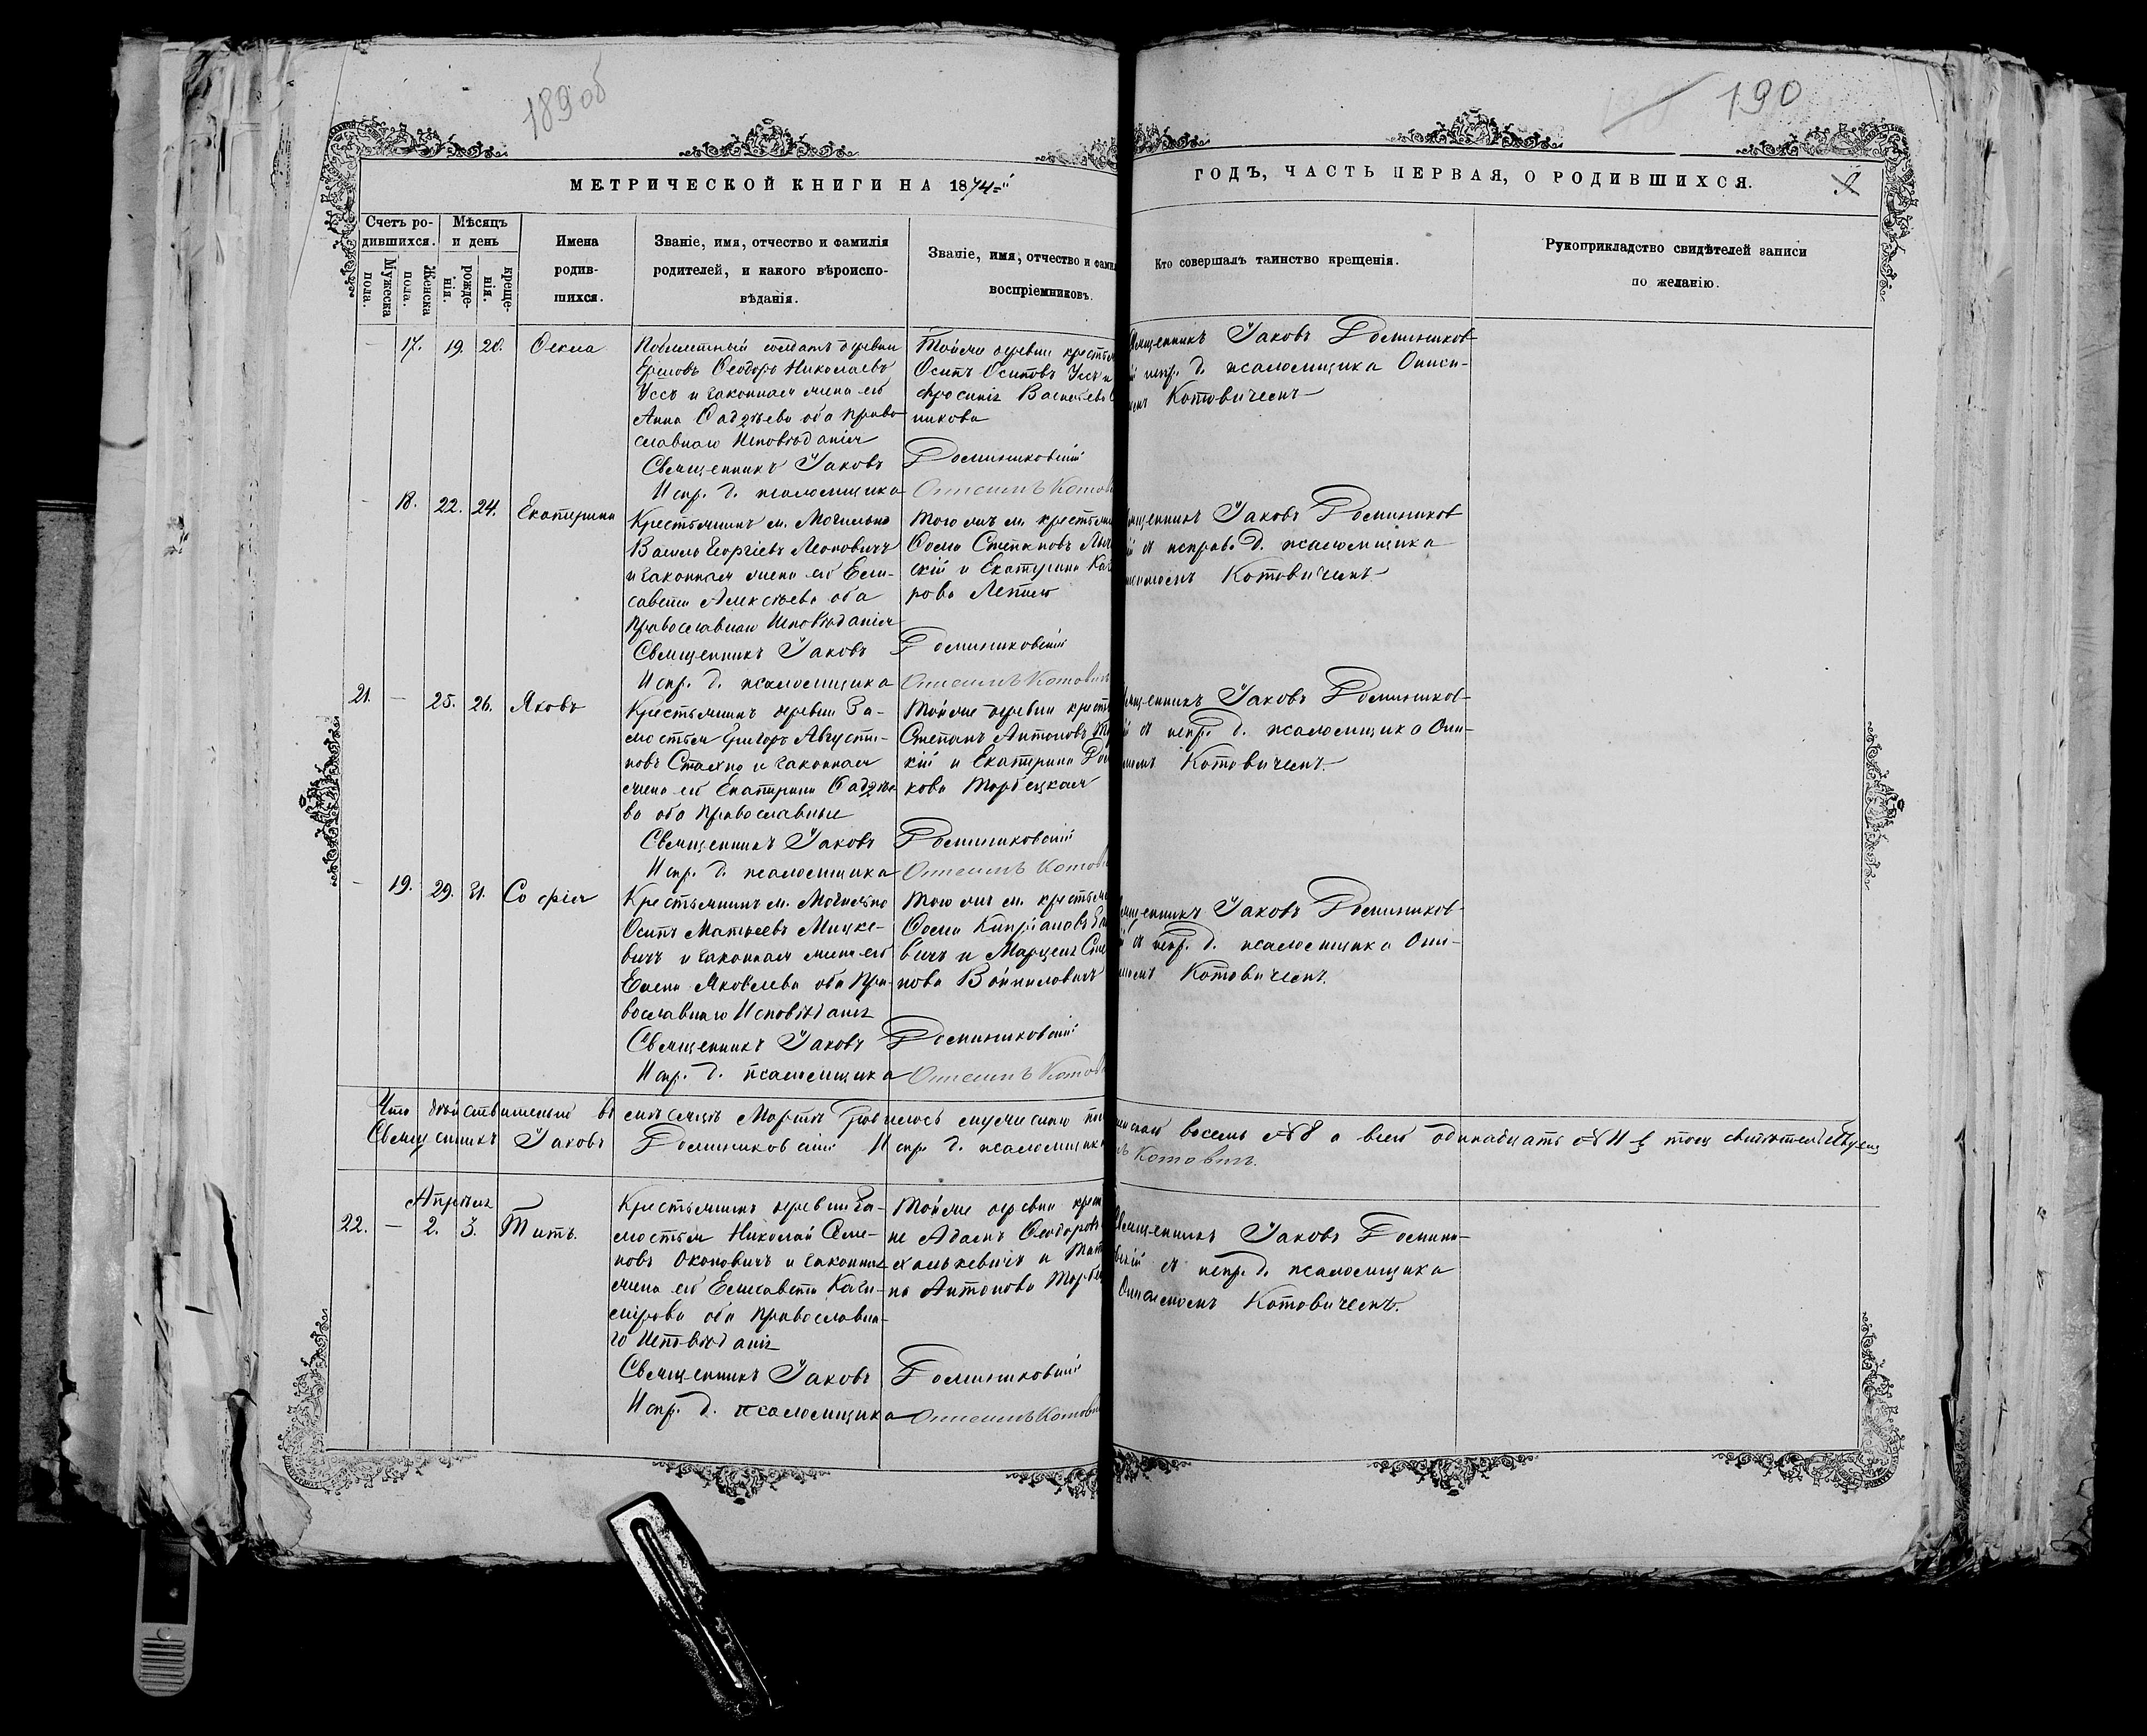 189 об
190
МЕТРИЧЕСКОЙ КНИГИ НА 1874-й
ГОДЪ, ЧАСТЬ ПЕРВАЯ, О РОДИВШИХСЯ.
Счетъ ро-
дившихся.
Мужеска
пола.
Женска
пола.
Мѣсяцъ
и день
рожде-
нія.
креще-
нія.
Имена
родив-
шихся.
Званіе, имя, отчество и фамилія
родителей, и какого вѣроиспо-
вѣданія.
Званіе, имя, отчество и фами
воспріемниковъ.
Кто совершалъ таинство крещенія.
Рукоприкладство свидѣтелей записи
по желанію.
17. 19. 20. Ѳекла
солдатъ деревни
Ѳеодоръ Николаевъ
Уссъ и законная жена его
Анна Ѳаддѣева оба право-
славнаго Исповѣданія
Тойже деревни кресть
Осипъ Осиповъ Уссъ и
никова
Священникъ Іаковъ Доминиковскій
Испр. д. псаломщика Онисимъ Котов
священникъ Іаковъ Домиников-
испр. д. псаломщика Ониси-
Котовичемъ
18. 22. 24. Екатерина
Крестьянинъ м. Могильно
Василій Георгіевъ Леоновичъ
и законная жена его Ели-
савета Алексѣева оба
Православнаго Исповѣданія
Того же м. крестьян
Ѳома Степановъ
скій и Екатерина Каз
рова
Священникъ Іаковъ Доминиковскій
Испр. д. псаломщика Онисимъ Котович
священникъ Іаковъ Домиников
й и исправ. д. псаломщика
Котовичемъ
21. — 25. 26. Яковъ
Крестьянинъ деревни За-
мостья Григорій Августи-
новъ Стахно и законная
жена его Екатерина Ѳаддѣе-
ва оба Православные
Тойже деревни кресть
Степанъ Антоновъ
кій и Екатерина
кова Торбецкая
Священникъ Іаковъ Доминиковскій
Испр. д. псаломщика Онисимъ Котов
священникъ Іаковъ Домиников-
й и испр. д. псаломщика Они-
Котовичемъ.
— 19. 29. 31. Софія
Крестьянинъ м. Могильно
Осипъ Матѳеевъ Мицке-
вичъ и законная жена его
Елена Яковлева оба Пра-
вославнаго Исповѣданія
Того же м. крестьян
Ѳома Кипріановъ
вичъ и
нова Войниловичъ
Священникъ Іаковъ Доминиковскій
Испр. д. псаломщика Онисимъ Котов
священникъ Іаковъ Домиников-
й и испр. д. псаломщика Они-
Котовичемъ.
Что дѣйствительно въ мѣсяцѣ Мартѣ родилось мужеска по
женскаго восемь №8 а всего одинадцать №11 въ томъ свидѣтельствуемъ
Священникъ Іаковъ Доминиковскій Испр. д. псаломщика
Котовичъ.
Апрѣля
22. — 2. 3. Титъ.
Крестьянинъ деревни За-
мостья Николай Семе-
новъ Оконовичъ и законная
жена его Елисавета Кази-
мірова оба Православна-
го Исповѣданія
Тойже деревни крест
не Адамъ Ѳеодоровъ
и Тат
на Антонова Торбе
Священникъ Іаковъ Доминиковскій
Испр. д. псаломщика Онисимъ Котович
Священникъ Іаковъ Домини-
вскій и испр. д. псаломщика
Онисимомъ Котовичемъ.